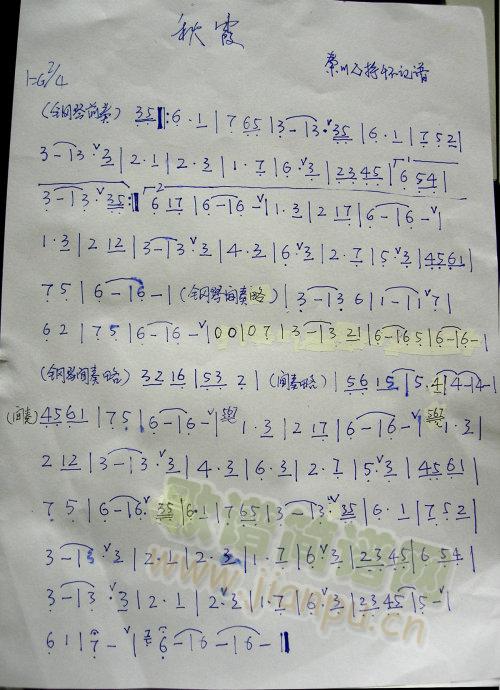 秋霞
1=G 2/4
(钢琴前奏) 35‖:6·1|7 65|3-|3·ˇ35|6·1|7 52|
3-|3·ˇ3|2·1|2·3|1·7|6·ˇ3|2345|6 54|
3-|3·ˇ35:‖6 17|6-|6-ˇ|1·3|2 17|6-|6-ˇ|
1·3|2 12|3-|3·ˇ3|4·3|6·ˇ3|2·7|5·ˇ3|4561|
7 5|6-|6-|(钢琴间奏略)|3-|3 6|1-|1ˇ7|
6 2|75|6-|6-ˇ|00|07|3-|3 21|6-|65|6-|6-|
(钢琴间奏略) 32 16|53 2|(间奏略)|56 15|5·4|4-|4-|
(间奏) 4561|75|6-|6-ˇ|1·3|2 17|6-|6-ˇ|567 1·3|
2 12|3-|3·ˇ3|4·3|6·3|2·7|5·ˇ3|4561|
7 5|6-|6·ˇ35|6·1|7 65|3-|3·ˇ35|6·1|7 52|
3-|3·ˇ3|2·1|2·3|1·7|6·ˇ3|2345|6 54|
3-|3·ˇ3|2·1|2·ˇ3|1·7|6·ˇ3|2345|5-ˇ|
61|7-ˇ|6-|6-|6-‖
歌谱简谱网
www.jianpu.cn